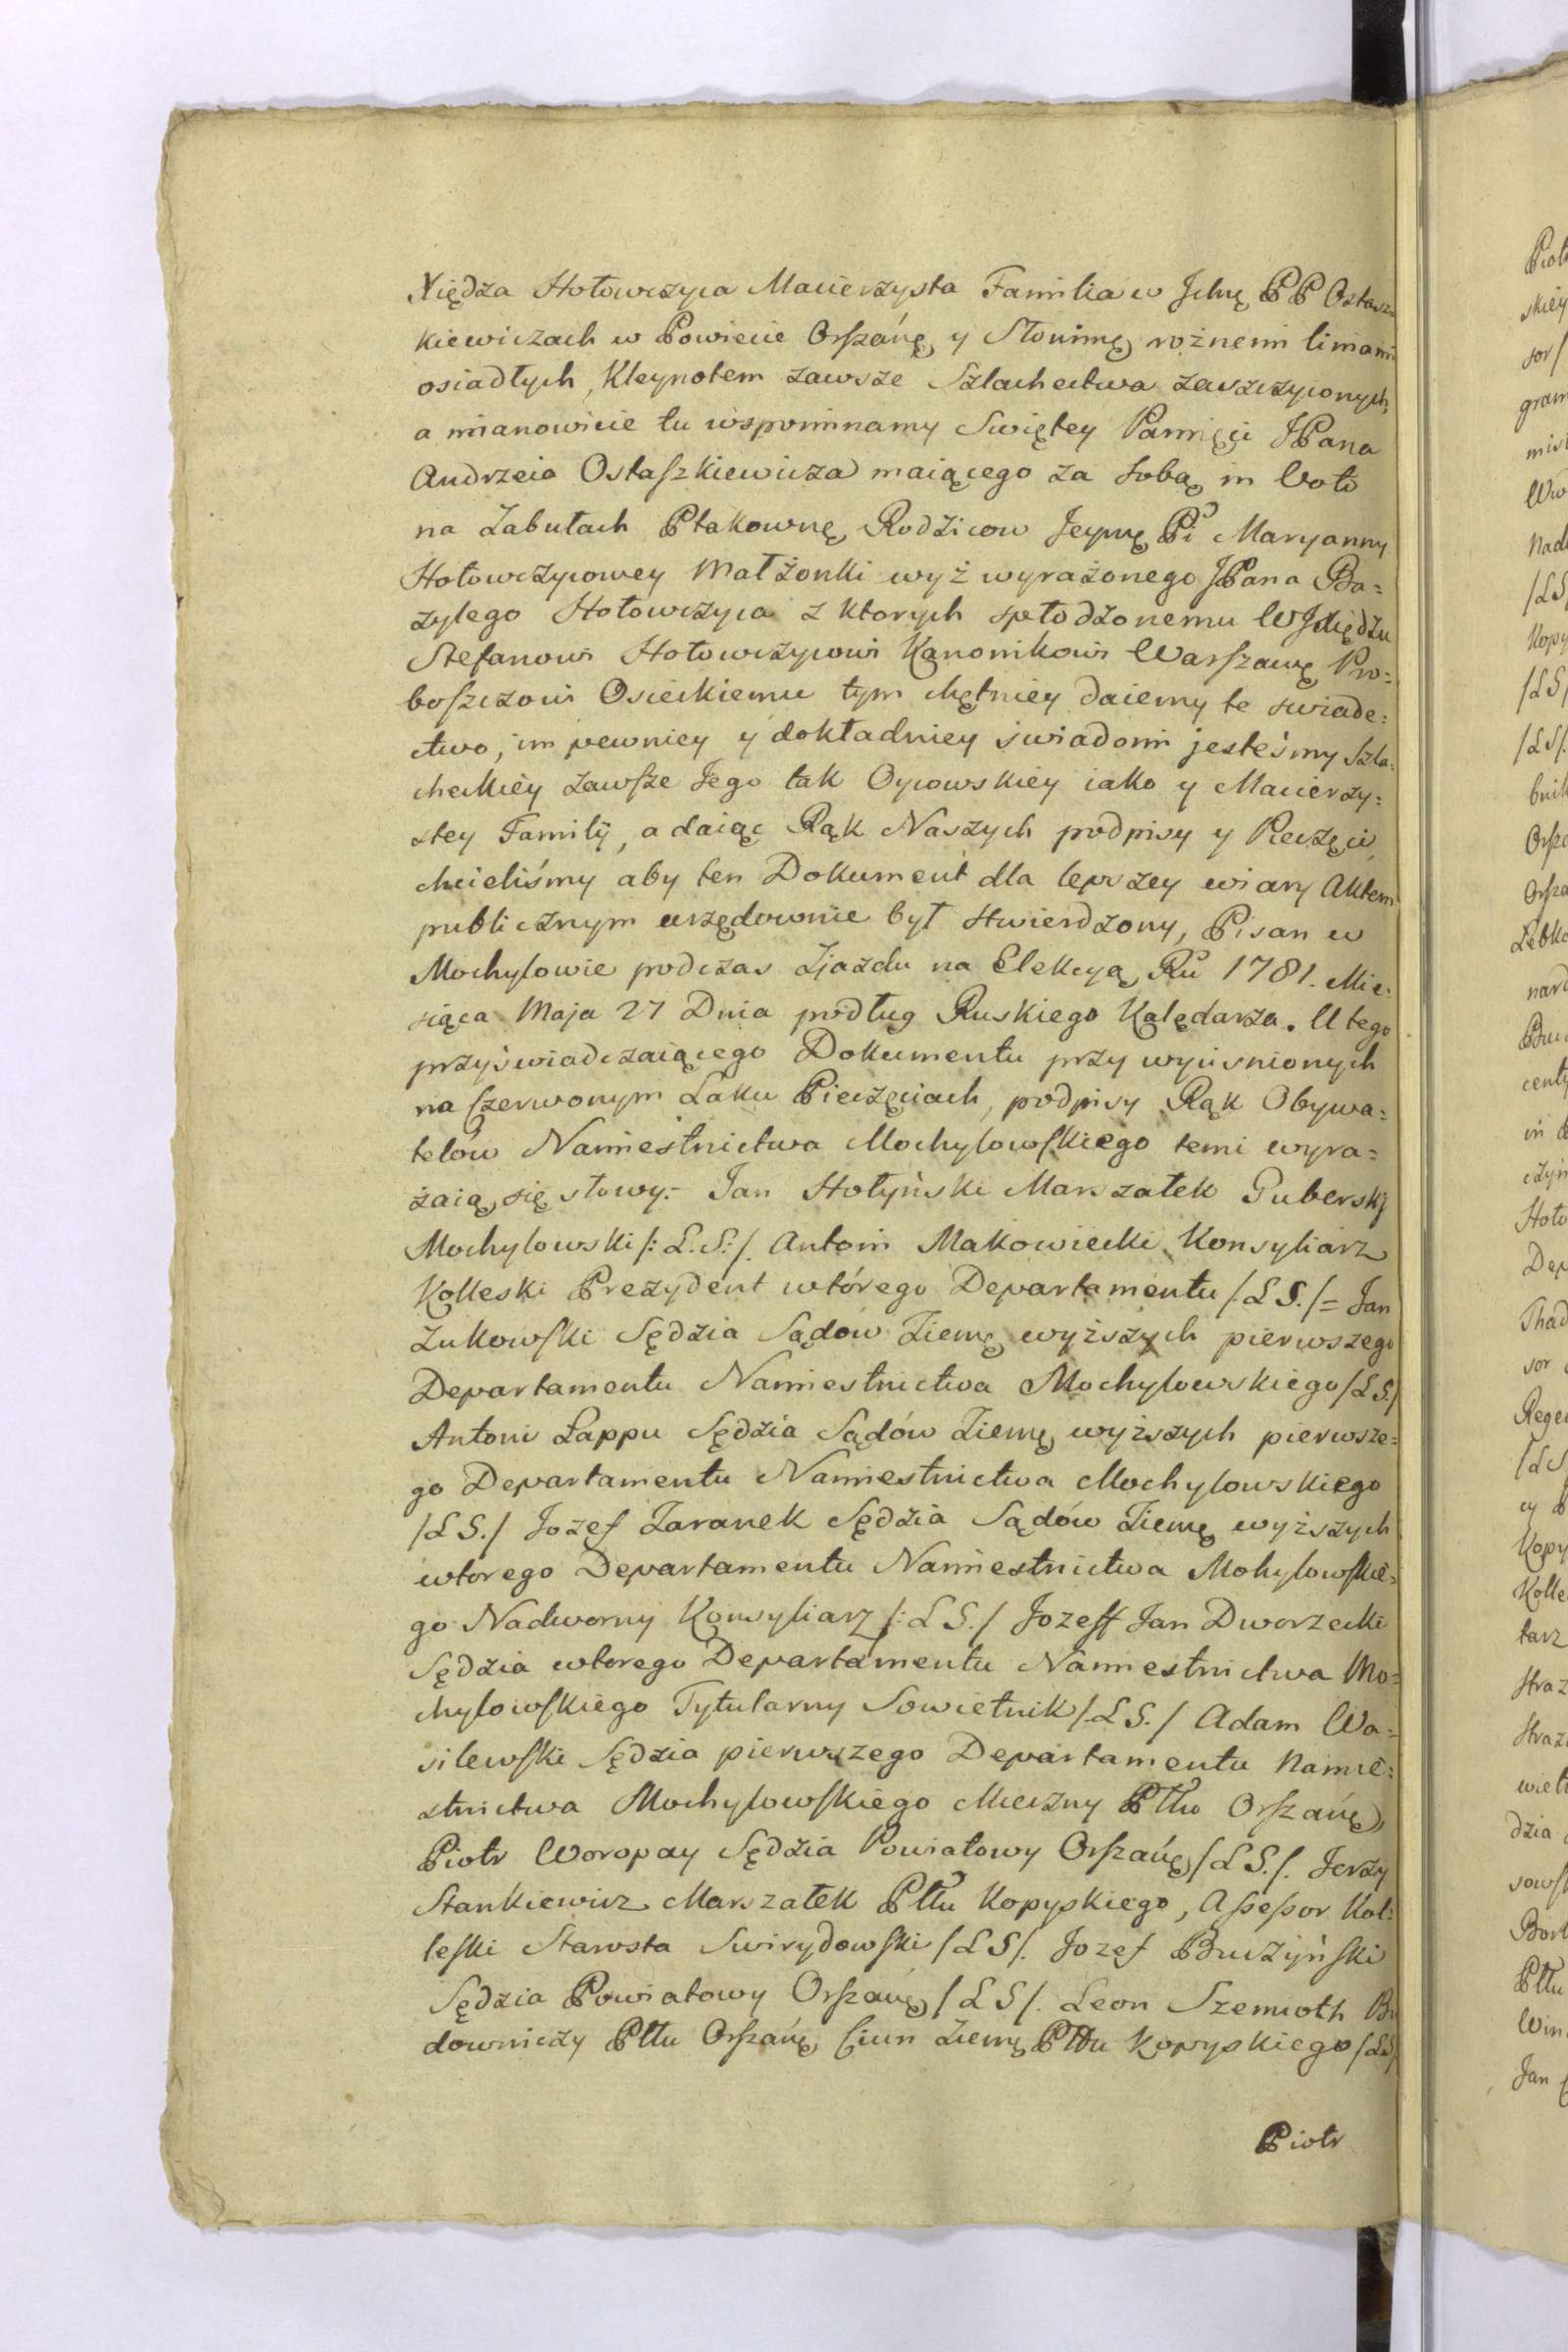 Xiędza Hołowczyca Macierzysta Familia w Ichę PP Ostasz
kiewiczach w Powiecie Orszańę y Słonimę rożnemi liniami
osiadłych, Kleynotem zawsze Szlachectwa zaszczyconych,
a mianowicie tu wspominamy Swiętey Pamięci JPana
Andrzeia Ostaszkiewicza maiącego za sobą in Voto
na Zabułach Ptakownę Rodzicow Jeymę Pi Maryanny
Hołowczycowey Małżonki wyż wyrażonego JPana Ba=
zylego Hołowczyca z ktorych spłodzonemu WJXiędzu
Stefanowi Hołowczycowi Kanonikowi Warszawę Pro=
boszczowi Osieckiemu tym chętniey daiemy te swiade=
ctwo, im pewniey y dokładniey świadomi jesteśmy Szla=
checkiéy zawsze Jego tak Oycowskiéy iako y Macierzy=
stey Familÿ, a daiąc Rąk Naszych podpisy y Pieczęci
chcieliśmy aby ten Dokument dla lepszey wiary Aktem
publicznym urzędownie był stwierdzony, Pisan w
Mochylowie podczas Zjazdu na Elekcyą Ru 1781. Mie=
siąca Maja 27 Dnia podług Ruskiego Kalędarza. U tego
przyświadczaiącego Dokumentu przy wyciśnionych
na Czerwonym Laku Pieczęciach, podpisy Rąk Obywa=
telów Namiestnictwa Mochylowskiego temi wyra=
żaią się słowy.- Jan Hołyński Marszałek Guberskj
Mochylowski /: L.S:/. Antoni Makowiecki Konsyliarz
Kolleski Prezydent wtórego Departamentu /LS./= Jan
Zukowski Sędzia Sądów Ziemę wyższych pierwszego
Departamentu Namiestnictwa Mochylowskiego /LS./
Antoni Łappu Sędzia Sądów Ziemę wyższych pierwsze=
go Departamentu Namiestnictwa Mochylowskiego
/LS./ Jozef Zaranek Sędzia Sądów Ziemę wyższych
wtorego Departamentu Namiestnictwa Mohylowskie=
go Nadworny Konsyliarz /: LS./ Jozeff Jan Dworzecki
Sędzia wtorego Departamentu Namiestnictwa Mo=
chylowskiego Tytularny Sowietnik /.LS./ Adam Wa=
silewski Sędzia pierwszego Departamentu Namie=
stnictwa Mochylowskiego Mieczny Pttu Orszańę
Piotr Woropay Sędzia Powiatowy Orszańę /LS./. Jerzy
Stankiewicz Marszałek Pttu Kopyskiego, Assessor Kol=
leski Starosta Swirydowski /LS/. Jozef Bruzyński
Sędzia Powiatowy Orszańę /LS/. Leon Szemioth Bu
downiczy Pttu Orszańę Ciun Ziemę Pttu Kopyskiego /LS/
Piotr